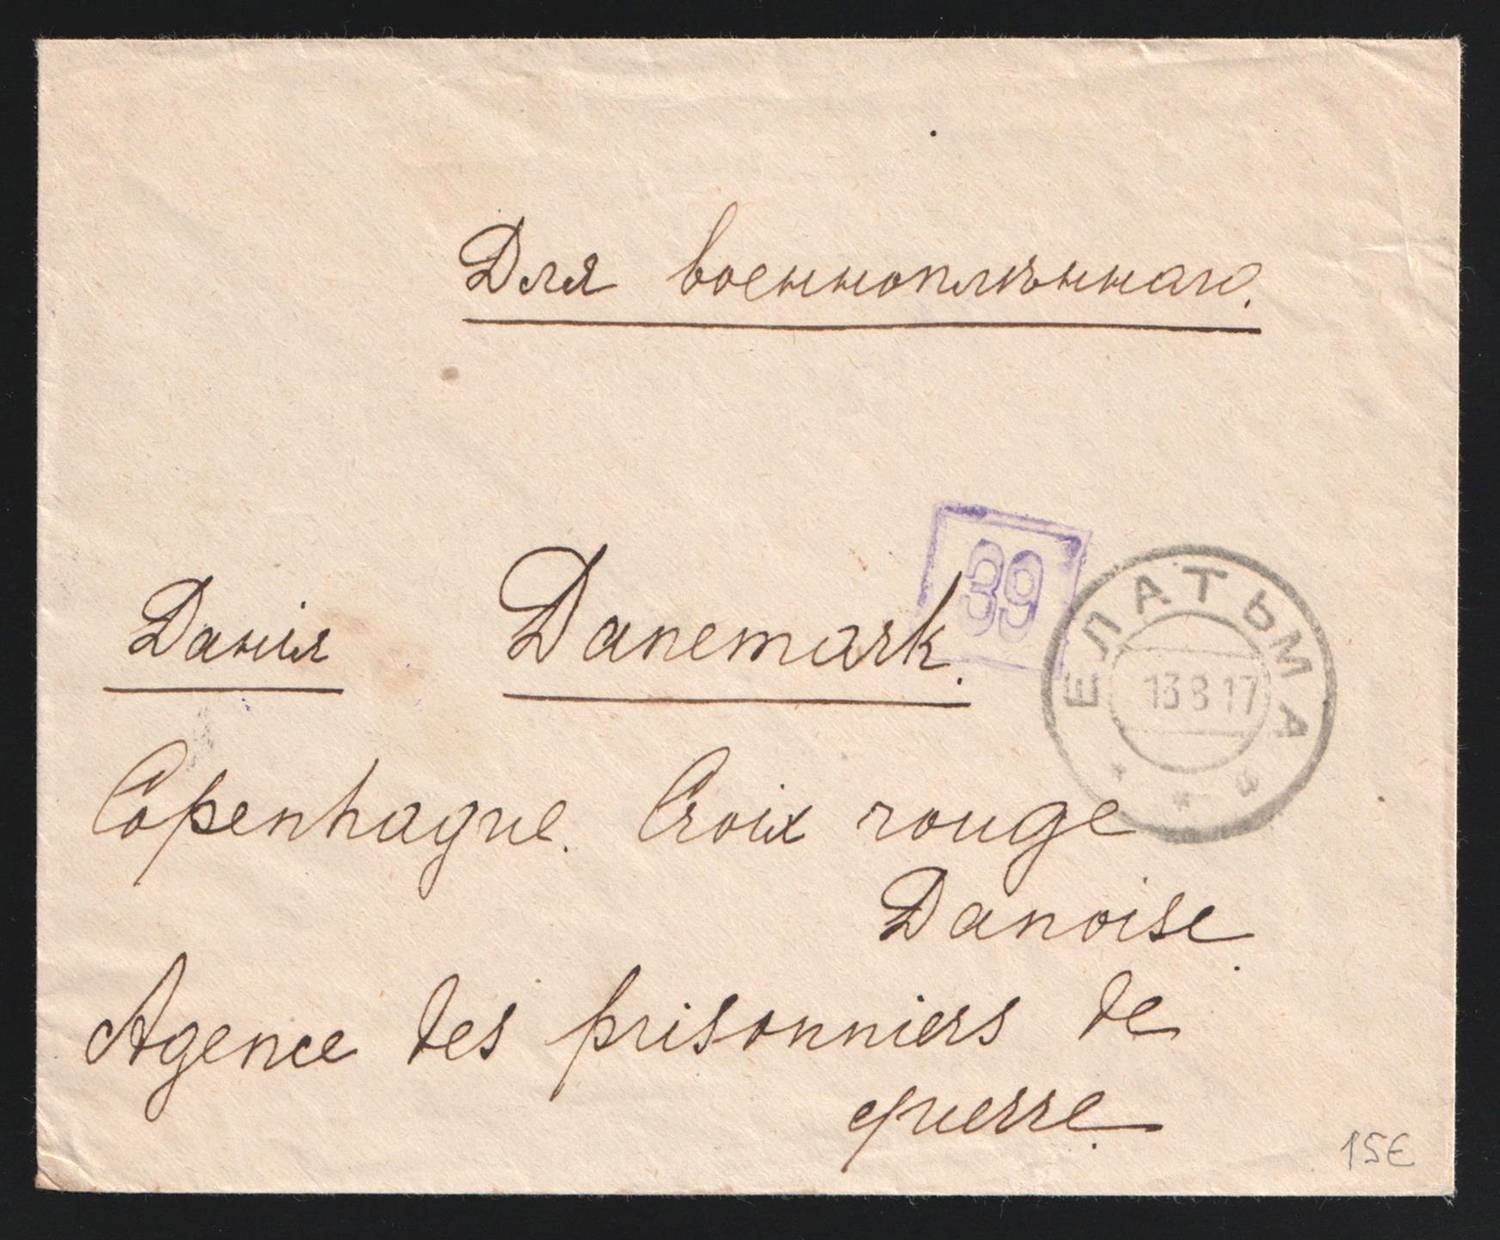 Для военноплѣннаго.
39
Данія Danemark.
ЕЛАТЬМА
13 8 17
Copenhague. Croix rouge
Danoise.
Agence des prisonniers de
guerre.
15€